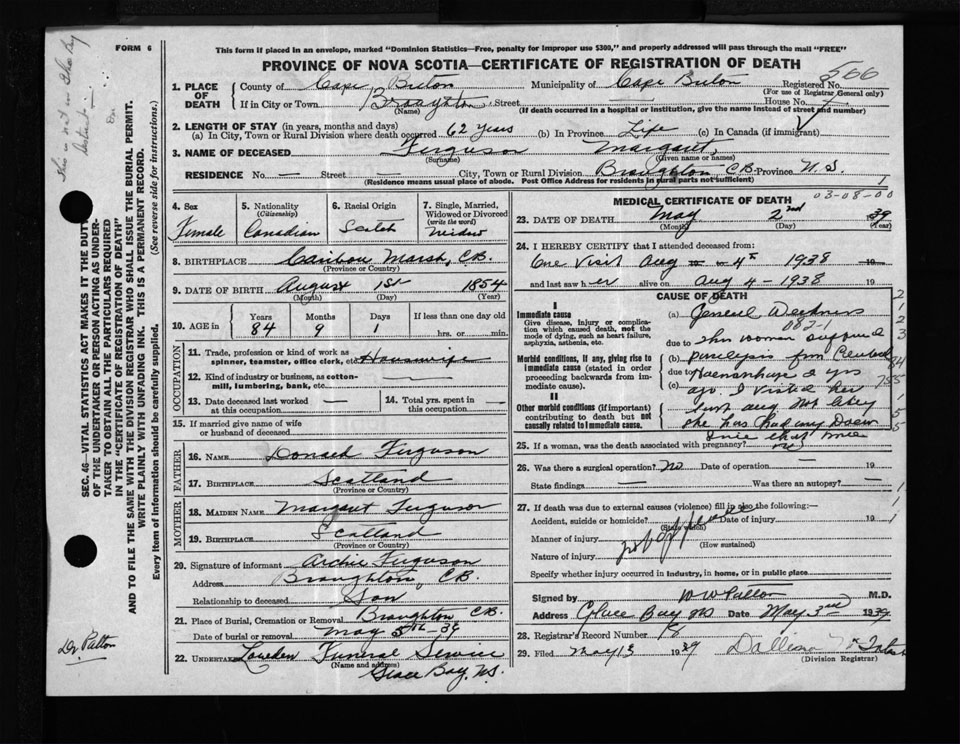 FORM 6
This form if placed in an envelope, marked "Dominion Statistics—Free, penalty for improper use $300," and properly addressed will pass through the mail "FREE"
PROVINCE OF NOVA SCOTIA—CERTIFICATE OF REGISTRATION OF DEATH
This is not in the Key
Dr Patton
SEC. 46—VITAL STATISTICS ACT MAKES IT THE DUTY
OF THE UNDERTAKER OR PERSON ACTING AS UNDER-
TAKER TO OBTAIN ALL THE PARTICULARS REQUIRED
IN THE "CERTIFICATE OF REGISTRATION OF DEATH"
AND TO FILE THE SAME WITH THE DIVISION REGISTRAR WHO SHALL ISSUE THE BURIAL PERMIT.
WRITE PLAINLY WITH UNFADING INK. THIS IS A PERMANENT RECORD.
Every item of information should be carefully supplied. (See reverse side for instructions.)
1. PLACE OF DEATH County of Cape Breton Municipality of Cape Breton Registered No. 566
(For use of Registrar General only)
If in City or Town Broughton Street House No.
(Name) (If death occurred in a hospital or institution, give the name instead of street and number)
2. LENGTH OF STAY (in years, months and days)
(a) In City, Town or Rural Division where death occurred 62 years (b) In Province Life (c) In Canada (if immigrant)
3. NAME OF DECEASED Ferguson Margaret
(Surname) (Given name or names)
RESIDENCE No. — Street — City, Town or Rural Division Broughton C.B. Province N.S.
(Residence means usual place of abode. Post Office Address for residents in rural parts not sufficient)
03-08-00
4. Sex Female
5. Nationality (Citizenship) Canadian
6. Racial Origin Scotch
7. Single, Married, Widowed or Divorced (write the word) Widow
8. BIRTHPLACE Caribou Marsh, C.B.
(Province or Country)
9. DATE OF BIRTH August 1st 1854
(Month) (Day) (Year)
10. AGE in Years 84 Months 9 Days 1 If less than one day old hrs. or min.
OCCUPATION
11. Trade, profession or kind of work as spinner, teamster, office clerk, etc. Housewife
12. Kind of industry or business, as cotton-mill, lumbering, bank, etc. —
13. Date deceased last worked at this occupation —
14. Total yrs. spent in this occupation —
15. If married give name of wife or husband of deceased
FATHER
16. NAME Donald Ferguson
17. BIRTHPLACE Scotland
(Province or Country)
MOTHER
18. MAIDEN NAME Margaret Ferguson
19. BIRTHPLACE Scotland
(Province or Country)
20. Signature of informant Archie Ferguson
Address Broughton, C.B.
Relationship to deceased Son
21. Place of Burial, Cremation or Removal Broughton C.B.
Date of burial or removal May 5th - 39
22. UNDERTAKER Funeral Service
(Name and address)
Glace Bay, N.S.
MEDICAL CERTIFICATE OF DEATH
23. DATE OF DEATH May 2nd 39
(Month) (Day) (Year)
24. I HEREBY CERTIFY that I attended deceased from:
One Visit Aug to 4th 1938 19
and last saw her alive on Aug 4 - 1938 19
CAUSE OF DEATH
I
Immediate cause
Give disease, injury or complication which caused death, not the mode of dying, such as heart failure, asphyxia, asthenia, etc.
Morbid conditions, if any, giving rise to immediate cause (stated in order proceeding backwards from immediate cause).
II
Other morbid conditions (if important) contributing to death but not causally related to immediate cause.
(a) General Weakness
082-1
due to This woman suffered
(b) paralysis from Cerebral
due to Haemorrhage 2 yrs
(c) ago. I visited her
last Aug
she has had any
since that time
25. If a woman, was the death associated with pregnancy? no
26. Was there a surgical operation? No Date of operation — 19
State findings — Was there an autopsy? —
27. If death was due to external causes (violence) fill in also the following:—
Accident, suicide or homicide? (State which) Date of injury 19
Manner of injury
(How sustained)
Nature of injury
Specify whether injury occurred in industry, in home, or in public place
Signed by W W Patton M.D.
Address Glace Bay NS Date May 3rd 1939
28. Registrar's Record Number
29. Filed May 13 1939
(Division Registrar)